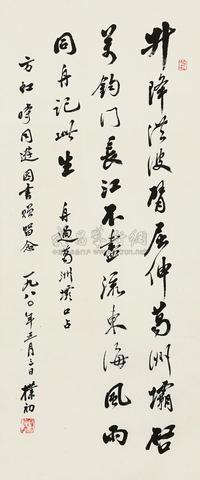 升降洪波臂屈伸葛洲壩启
万钧门長江不尽流東海風雨
同舟記此生 舟過葛洲壩口占
方红峥同遊因書贈留念 一九八〇年三月三日 樸初